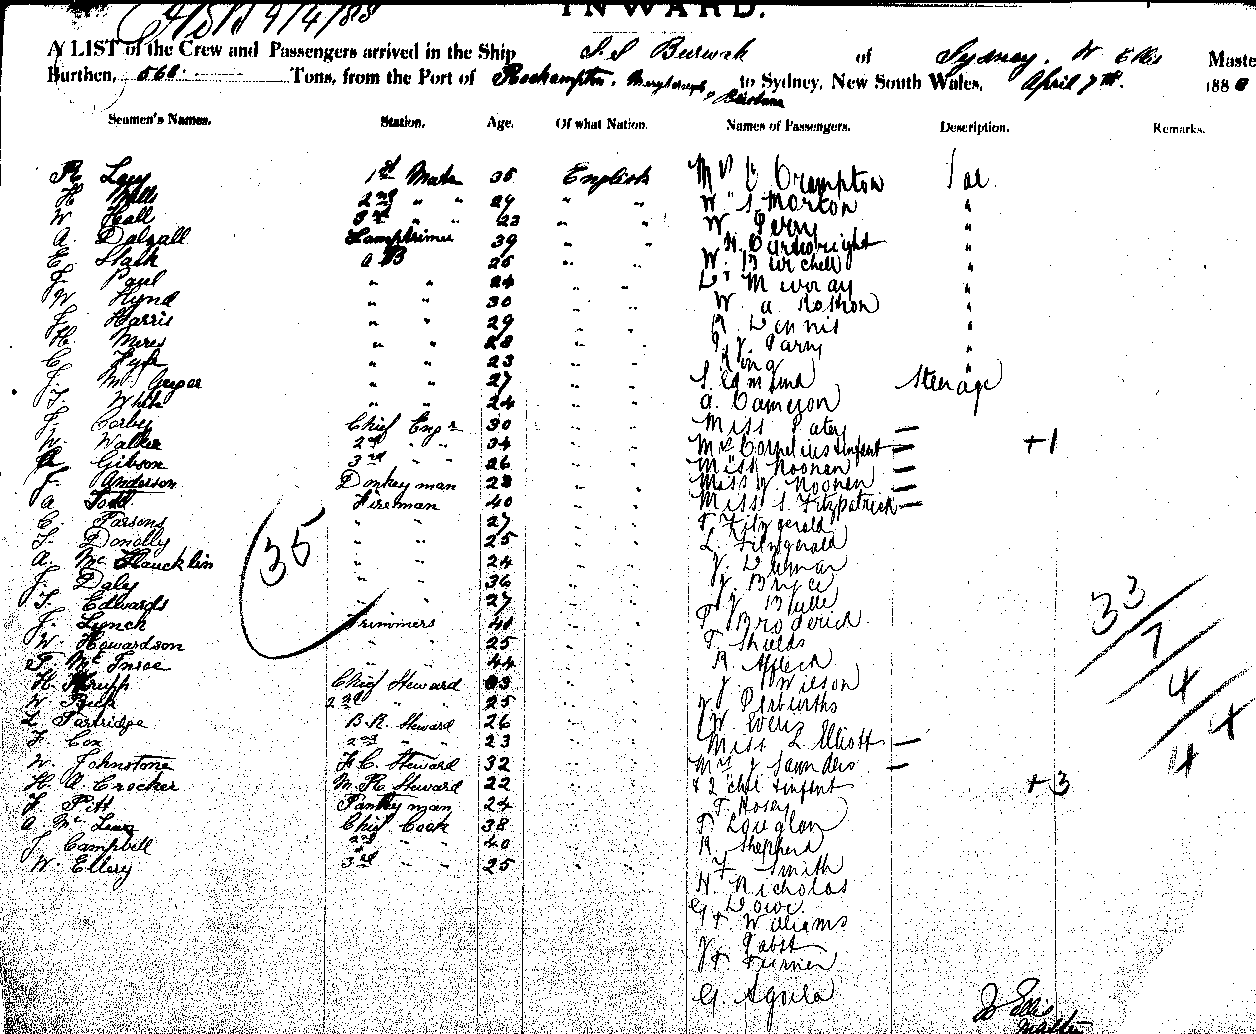 9/4/88
INWARD.
A LIST of the Crew and Passengers arrived in the Ship S.S Burwah of Sydney. W Ellis Maste
Burthen, 568 Tons, from the Port of Rockhampton, Maryborough, Brisbane to Sydney, New South Wales, April 7th. 188
Seamen's Names. Station. Age. Of what Nation. Names of Passengers. Description. Remarks.
1st Mate 35 English Mr Crampton Sal
H Mills 2nd " " 29 " " W S Morton "
W Hall 3rd " " 23 " " W Perry "
A. Dalgall Lamptrimer 39 " " Cartwright "
E. Slack A B 25 " " W. Burchell "
J. Paul " " 24 " " Murray "
W Hynd " " 30 " " W A "
J. Harris " " 29 " " Dennis "
H. Mires " " 28 " " "
C. Fyfe " " 23 " " King "
J. McGregor " " 27 " " S. Steerage
T. White " " 24 " " A. Cameron
J. Corbey Chief Engr 30 " " Miss —
W. Walker 2nd " " 34 " " Mrs Cornelius & infant — +1
Gibson 3rd " " 26 " " Miss Noonan —
J. Anderson Donkeyman 28 " " Miss Noonan —
A Todd Fireman 40 " " Miss S. Fitzpatrick —
C. Parsons " " 27 " " T. Fitzgerald
T. Donolly " " 25 " " L. Fitzgerald
A. McLaucklin " " 24 " " J.
J. Daly " " 36 " " J. Bryce
T. Edwards " " 27 " " J.
J. Lynch Trimmers 40 " " T Broderick
W. Howardson " " 25 " " T. Shields
T. McInroe " " 44 " " R. Affleck
H. Chief Steward 33 " " J Wilson
W. 2nd " " 25 " "
Partridge B.R. Steward 26 " " W
J. Cox 2nd " " 23 " " Miss L Elliott —
W. Johnstone F.C. Steward 32 " " Mrs J Saunders —
H. A. Crocker M. R. Steward 22 " " & 2 chil & infant +3
J. Pitt Pantryman 24 " " T Hosey
A Mc Chief Cook 38 " " T
J. Campbell 2nd " " 40 " " R Shepherd
W. Ellery 3rd " " 25 " " Smith
H. Nicholas
G
Williams
J. Pabst
Turner
G. Aguila
35
33
7
4
44
W Ellis
Master